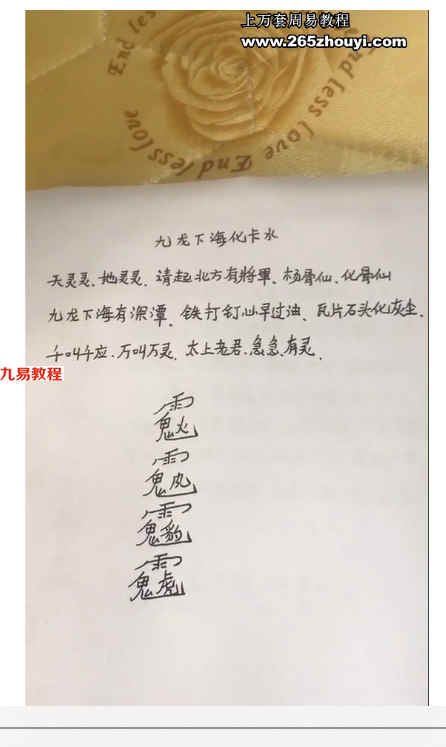 上万套周易教程
www.265zhouyi.com
End less love End less love
End less
九龙下海化卡水
天灵灵、地灵灵、请起北方有將軍、杨骨仙、化骨仙
九龙下海有深潭、铁打钉山早过油、瓦片石头化灰尘、
千叫千应、万叫万灵、太上老君、急急、有灵、
九易教程